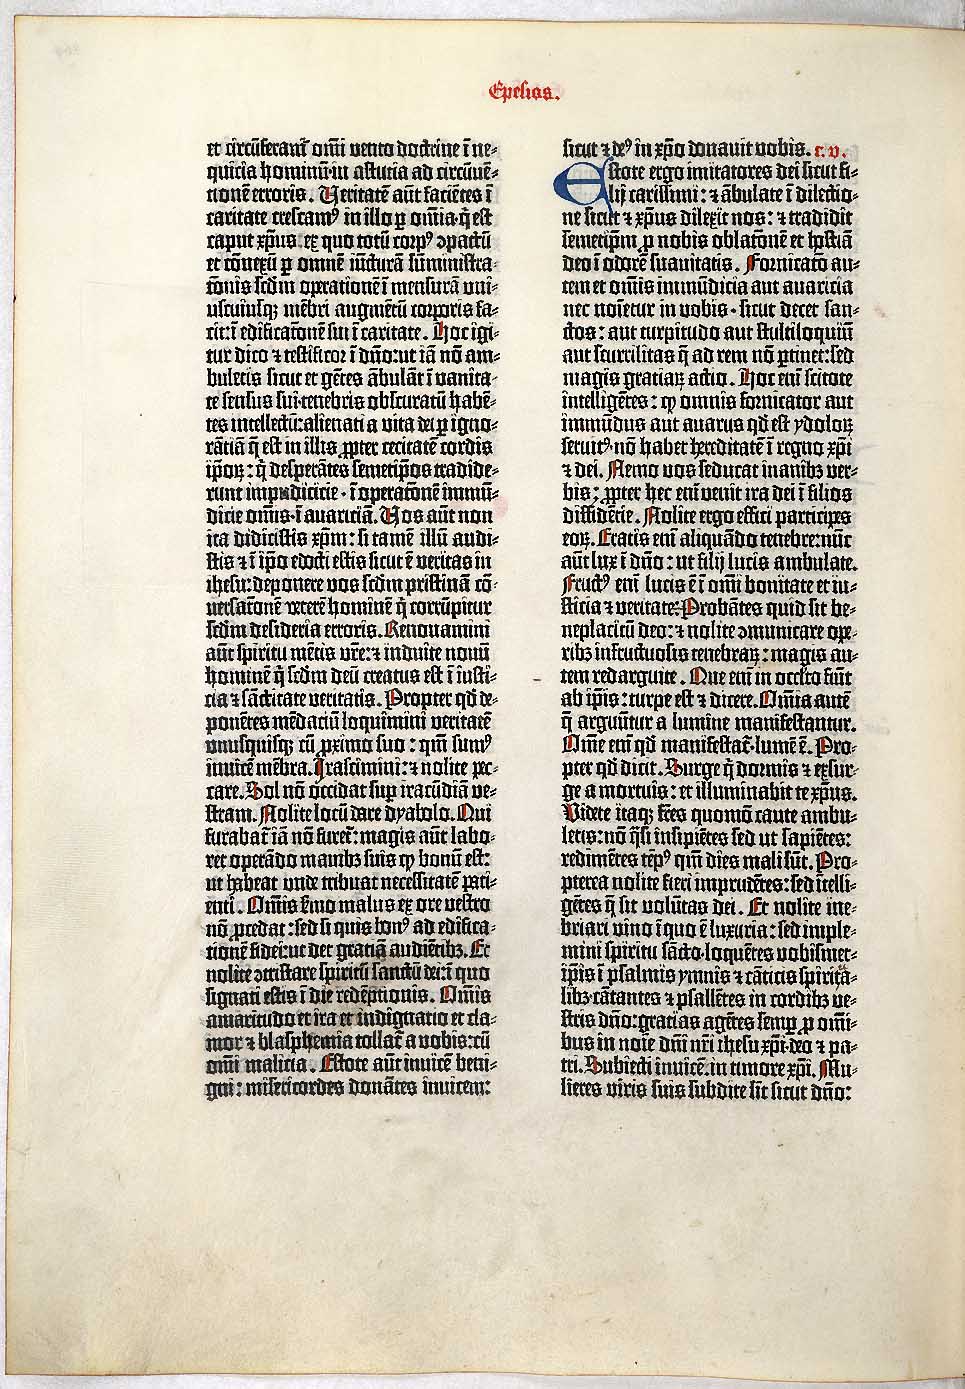 Epesios.
et circūferant᷑ omi vento doctrine ī ne⸗
quicia hominū·in astutia ad circūuē⸗
tionē erroris. Veritatē aūt faciētes ī
caritate crescam᷒ in illo ꝑ omīa·q̄ est
caput xp̄us. ex quo totū corp᷒ ↄpactū
et cōnexū ꝑ omnē iūcturā sūministra⸗
tōnis scdm operationē ī mensurā vni⸗
uscuiusqꝫ mēbri augmētū corporis fa⸗
cit:ī edificatōnē sui ī caritate. Hoc igi⸗
tur dico ⁊ testificor ī dn̄o:ut iā nō am⸗
buletis sicut et gētes ābulāt ī vanita⸗
te sensus sui·tenebris obscuratū habē⸗
tes intellectū:alienati a vita dei ꝑ igno⸗
rātiā q̄ est in illis ꝓpter cecitatē cordis
ip̄oꝝ: q̄ desperātes semetip̄os tradide⸗
runt impudicicie·ī operatōnē immū⸗
dicie om̄is·ī auariciā. Vos aūt non
ita didicistis xp̄m: si tamē illū audi⸗
stis ⁊ ī ip̄o edocti estis sicut ē veritas in
ihesu:deponere vos scdm pristinā cō⸗
uersatōnē veterē hominē q̄ corrūpitur
scdm desideria erroris. Renouamini
aūt spiritu mētis vr̄e:⁊ induite nouū
hominē q̄ scdm deū creatus est ī iusti⸗
cia ⁊ sāctitate veritatis. Propter qd̄ de⸗
ponētes mēdaciū loquimini veritatē
vnusquisqꝫ cū ꝓximo suo: qm̄ sum᷒
inuicē mēbra. Irascimini:⁊ nolite pec⸗
care. Sol nō occidat suꝑ iracūdiā ve⸗
stram. Nolite locū dare dyabolo. Qui
furabat᷑ iā nō furet᷑: magis aūt labo⸗
ret operādo manibꝫ suis ꝙ bonū est:
ut habeat unde tribuat necessitatē pati⸗
enti. Om̄is s̄mo malus ex ore vestro
nō ꝓcedat: sed si quis bon᷒ ad edifica⸗
tionē fidei:ut det gratiā audiētibꝫ. Et
nolite ↄtristare spiritū sanctū dei:ī quo
signati estis ī die redēptionis. Om̄is
amaritudo et ira et indignatio et cla⸗
mor ⁊ blasphemia tollat᷑ a vobis:cū
om̄i malicia. Estote aūt inuicē beni⸗
gni: misericordes donātes inuicem:
sicut ⁊ de᷒ in xp̄o donauit vobis. c. v.
Estote ergo imitatores dei sicut fi⸗
lij carissimi: ⁊ ābulate ī dilectio⸗
ne sicut ⁊ xp̄us dilexit nos: ⁊ tradidit
semetip̄m ꝓ nobis oblatōnē et hostiā
deo ī odorē suauitatis. Fornicatō au⸗
tem et om̄is immūdicia aut auaricia
nec noīetur in vobis·sicut decet san⸗
ctos: aut turpitudo aut stultiloquiū
aut scurrilitas q̄ ad rem nō ꝑtinet:sed
magis gratiaꝝ actio. Hoc eni̅ scitote
intelligētes: ꝙ omnis fornicator aut
immūdus aut auarus qd̄ est ydoloꝝ
seruit᷒·nō habet hereditatē ī regno xp̄i
⁊ dei. Nemo vos seducat inanibꝫ ver⸗
bis: ꝓpter hec eni̅ venit ira dei ī filios
diffidētie. Nolite ergo effici participes
eoꝝ. Eratis eni̅ aliquādo tenebre:nūc
aūt lux ī dn̄o: ut filij lucis ambulate.
Fruct᷒ eni̅ lucis ē ī om̄i bonitate et iu⸗
sticia ⁊ veritate. Probātes quid sit be⸗
neplacitū deo:⁊ nolite ↄmunicare ope⸗
ribꝫ infructuosis tenebraꝝ: magis au⸗
tem redarguite. Que eni̅ in occl̄to fiūt
ab ip̄is:turpe est ⁊ dicere. Om̄ia autē
q̄ arguūtur a lumine manifestantur.
Om̄e eni̅ qd̄ manifestat᷑·lumē ē. Pro⸗
pter qd̄ dicit. Surge q̄ dormis ⁊ exsur⸗
ge a mortuis: et illuminabit te xp̄us.
Videte itaqꝫ fr̄es quomō caute ambu⸗
letis:nō q̄si insipiētes sed ut sapiētes:
redimētes tēp᷒ qm̄ dies mali sūt. Pro⸗
pterea nolite fieri imprudētes: sed ītelli⸗
gētes q̄ sit volūtas dei. Et nolite ine⸗
briari vino ī quo ē luxuria: sed imple⸗
mini spiritu sācto·loquētes vobismet⸗
ip̄is ī psalmis ymnis ⁊ cāticis spiritua⸗
libꝫ·cātantes ⁊ psallētes in cordibꝫ ve⸗
stris dn̄o:gratias agētes semꝑ ꝓ om̄i⸗
bus in noīe dn̄i nr̄i ihesu xp̄i·deo ⁊ pa⸗
tri. Subiecti inuicē·in timore xp̄i. Mu⸗
lieres viris suis subdite sīt sicut dn̄o: